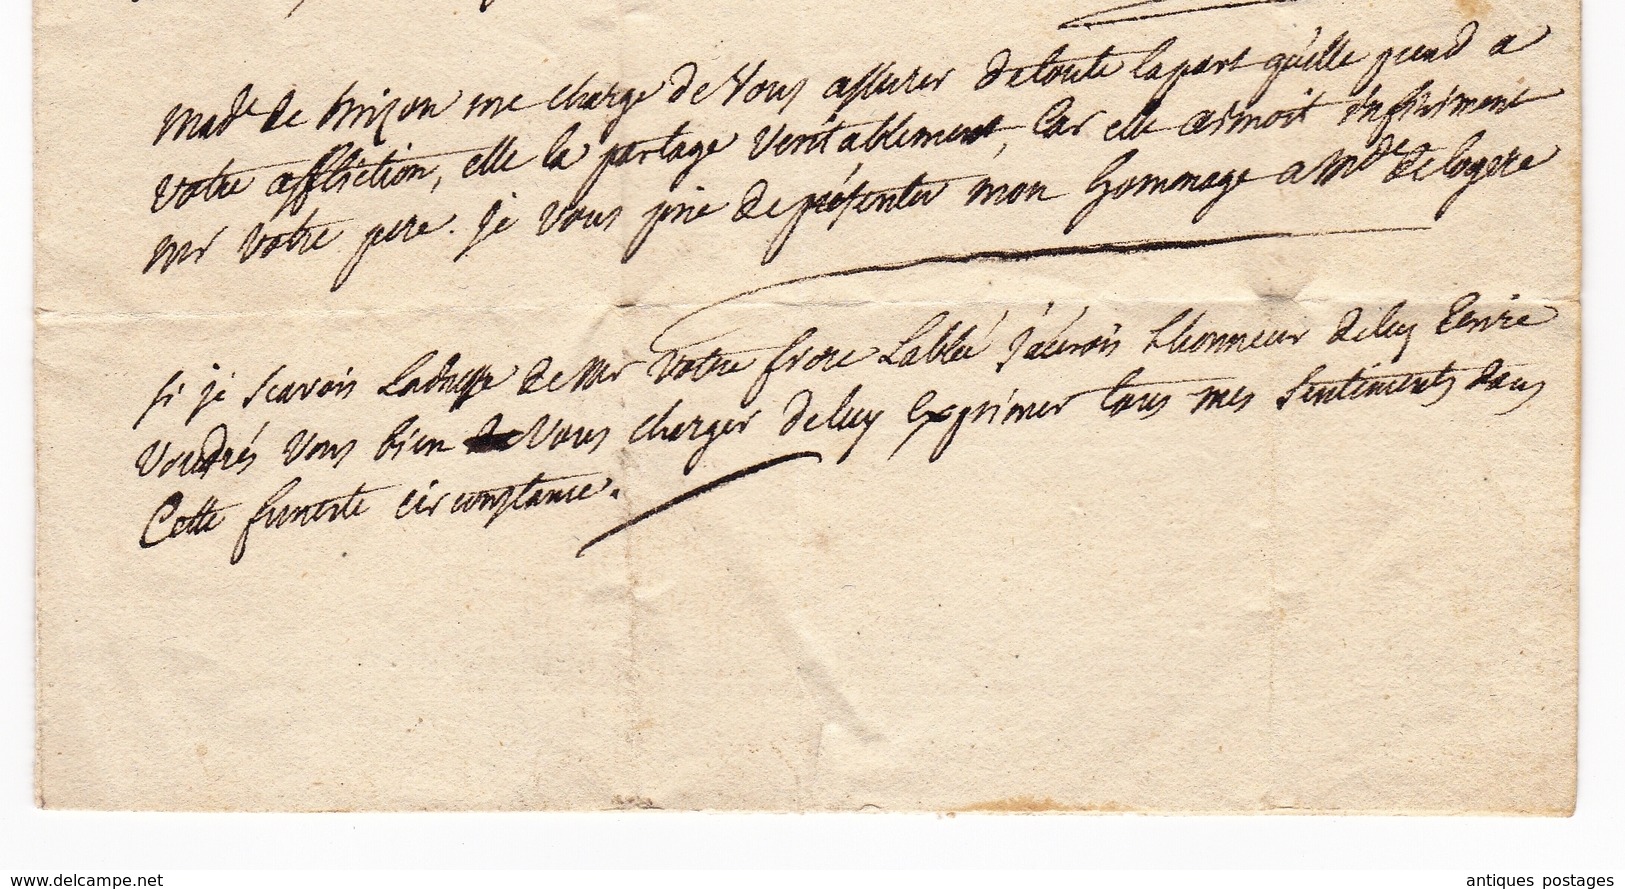 Made de Brizon me charge de Vous assurer detoute lapart qu'elle prend a
Votre affliction, elle la partage Veritablement, Car elle aimoit infiniment
mr Votre pere. je Vous prie de présenter mon hommage a Mde de logere
si je scavois Ladresse de Mr Votre frere Labbé j'aurois Lhonneur deluy Ecrire
Voudrés Vous bien Vous charger deluy Exprimer tous mes Sentiments dans
Cette funeste circonstance.
www.delcampe.net
antiques postages